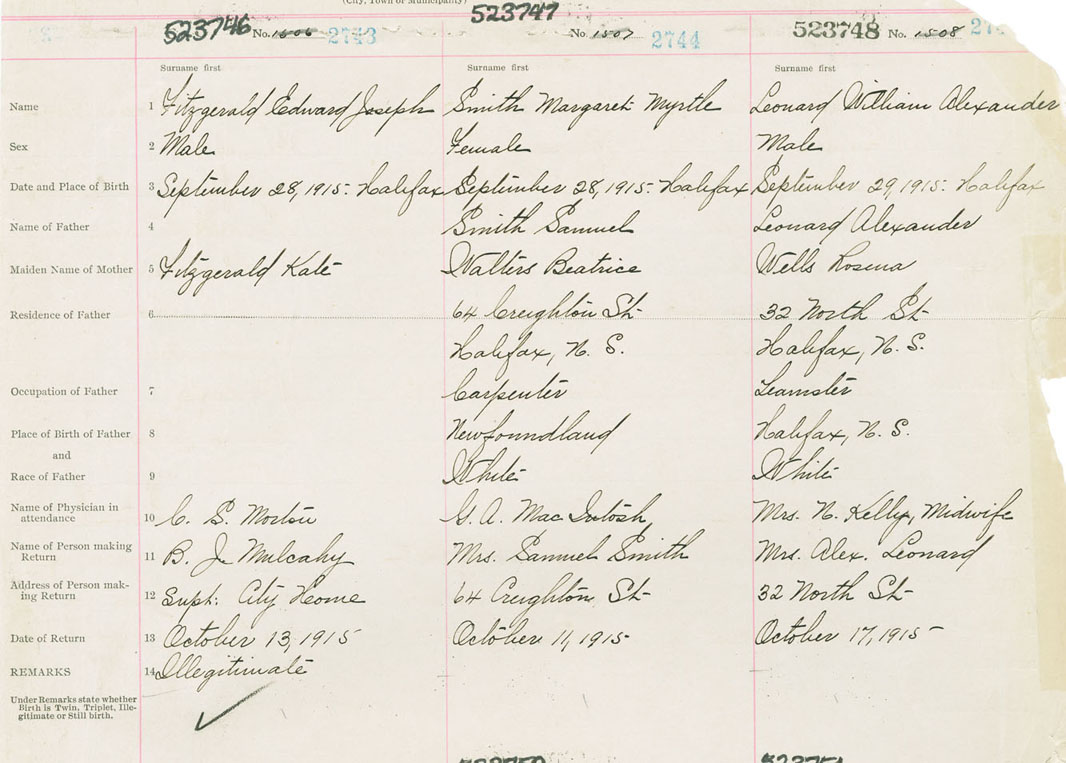 (City, Town or Municipality)
523746 No. 1506 2743 523747 No. 1507 2744 523748 No. 1508
Surname first Surname first Surname first
Name 1 Fitzgerald Edward Joseph Smith Margaret Myrtle Leonard William Alexander
Sex 2 Male Female Male
Date and Place of Birth 3 September 28, 1915. Halifax September 28, 1915. Halifax September 29, 1915. Halifax
Name of Father 4 Smith Samuel Leonard Alexander
Maiden Name of Mother 5 Fitzgerald Kate Walters Beatrice Wells Rosena
Residence of Father 6 64 Creighton St 32 North St
Halifax, N. S. Halifax, N. S.
Occupation of Father 7 Carpenter Teamster
Place of Birth of Father 8 Newfoundland Halifax, N. S.
and
Race of Father 9 White White
Name of Physician in
attendance 10 C. S. Morton G. A. MacIntosh Mrs. N. Kelly, Midwife
Name of Person making
Return 11 B. J. Mulcahy Mrs. Samuel Smith Mrs. Alex. Leonard
Address of Person mak-
ing Return 12 Supt. City Home 64 Creighton St 32 North St
Date of Return 13 October 13, 1915 October 11, 1915 October 17, 1915
REMARKS 14 Illegitimate
Under Remarks state whether
Birth is Twin, Triplet, Ille-
gitimate or Still birth.